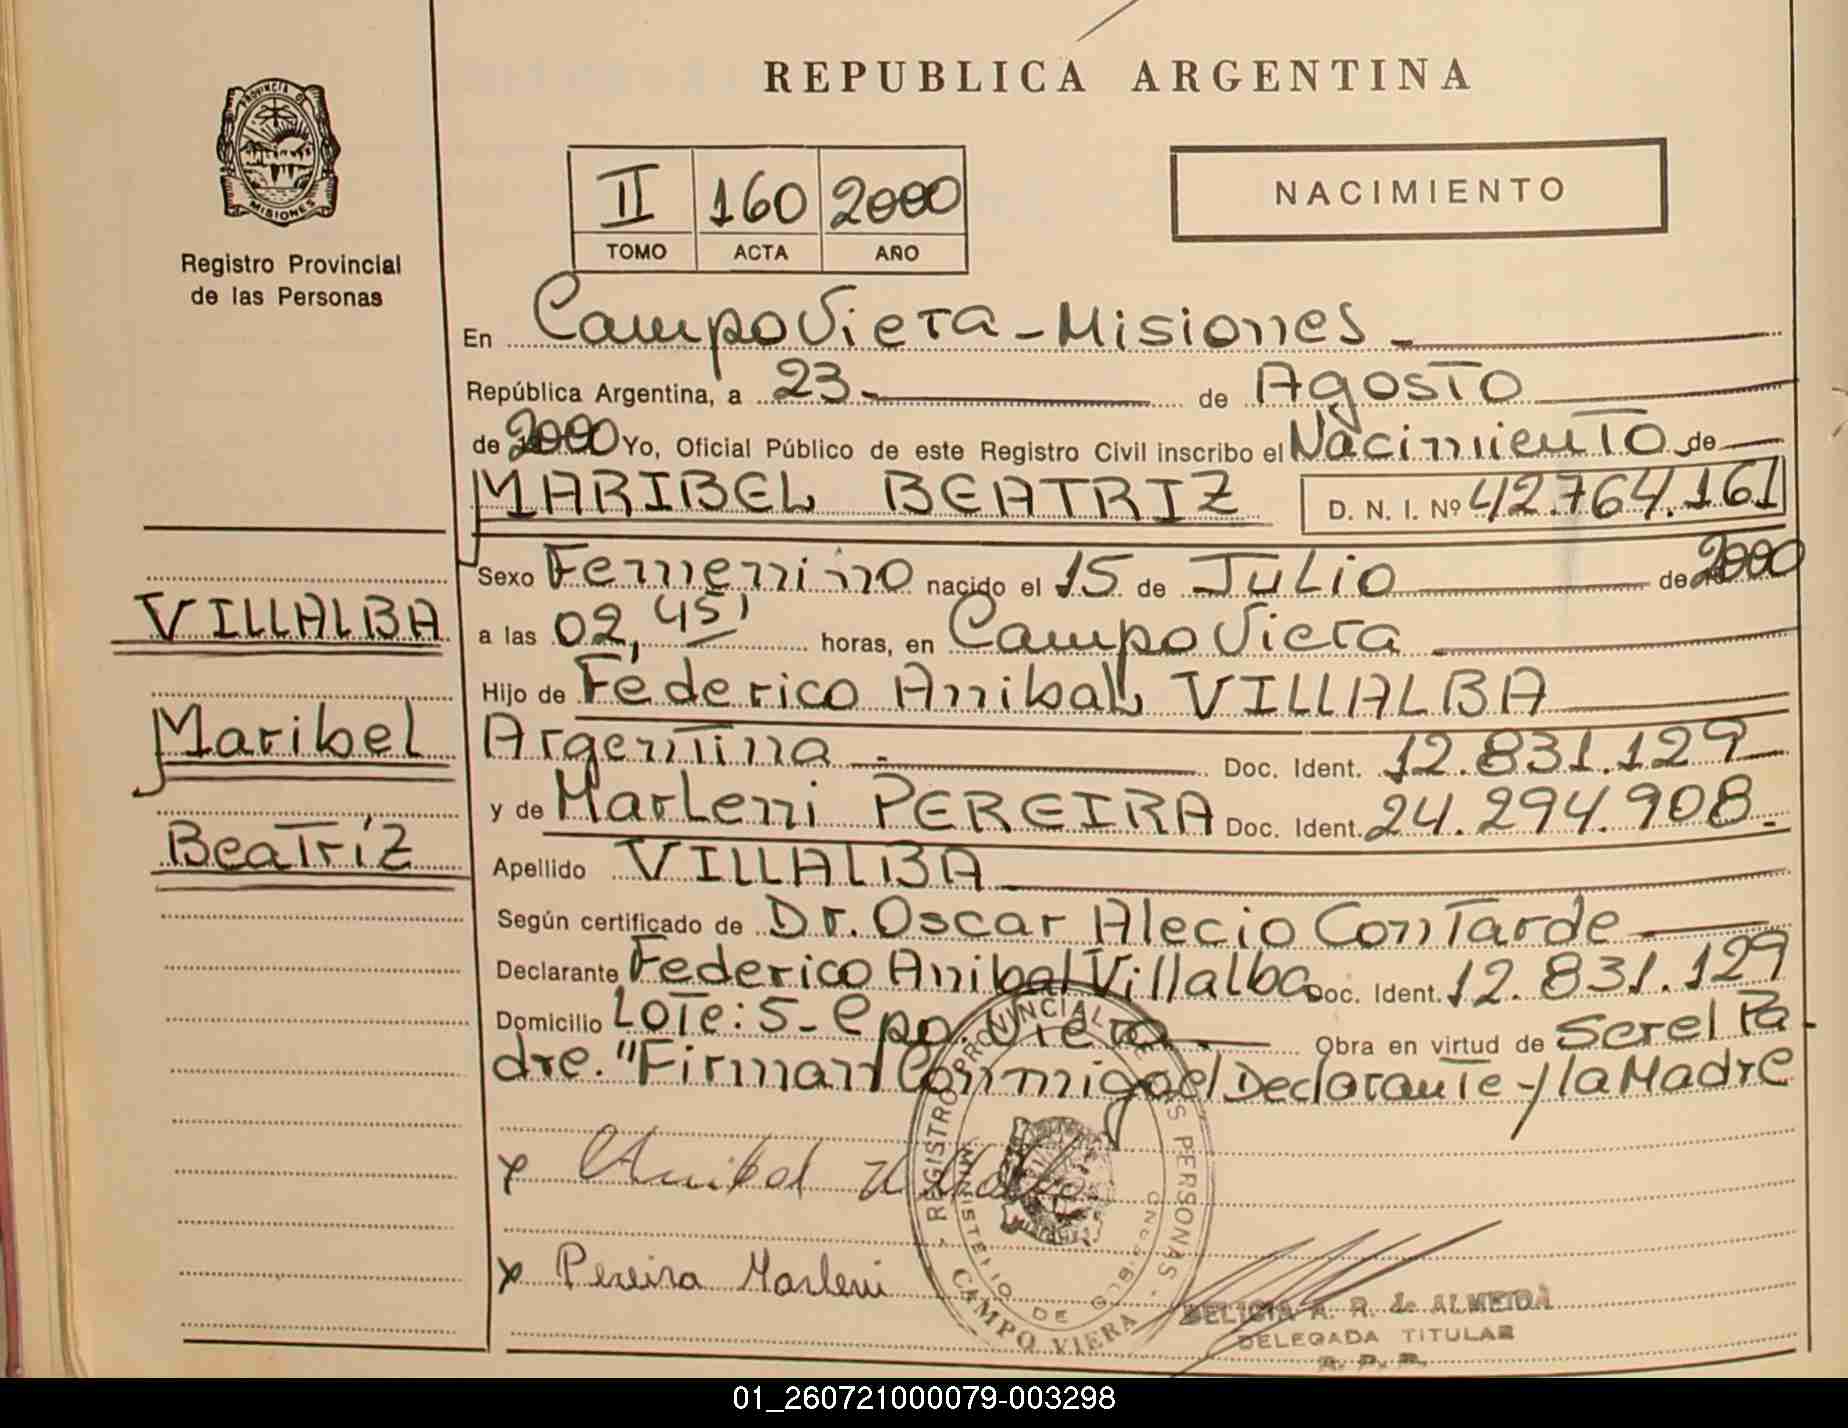 REPUBLICA ARGENTINA
PROVINCIA DE
MISIONES
Registro Provincial
de las Personas
II 160 2000
TOMO ACTA AÑO
NACIMIENTO
En Campo Viera - Misiones
República Argentina, a 23 de Agosto
de 2000 Yo, Oficial Público de este Registro Civil inscribo el Nacimiento de
MARIBEL BEATRIZ D. N. I. Nº 42.764.161
Sexo Femenino nacido el 15 de Julio de 2000
a las 02,45' horas, en Campo Viera
Hijo de Federico Anibal VILLALBA
Argentina Doc. Ident. 12.831.129
y de Marleni PEREIRA Doc. Ident. 24.294.908.
Apellido VILLALBA
Según certificado de Dr. Oscar Alecio Contarde
Declarante Federico Anibal Villalba Doc. Ident. 12.831.129
Domicilio Lote: 5 - Cpo. Viera Obra en virtud de Ser el Pa
dre. "Firman Conmigo el Declarante y la Madre
VILLALBA
Maribel
Beatríz
x Anibal Villalba
x Pereira Marleni
REGISTRO PROVINCIAL DE LAS PERSONAS
MINISTERIO DE GOBIERNO
CAMPO VIERA
DELICIA A. R. de ALMEIDA
DELEGADA TITULAR
R. P. P.
01_260721000079-003298